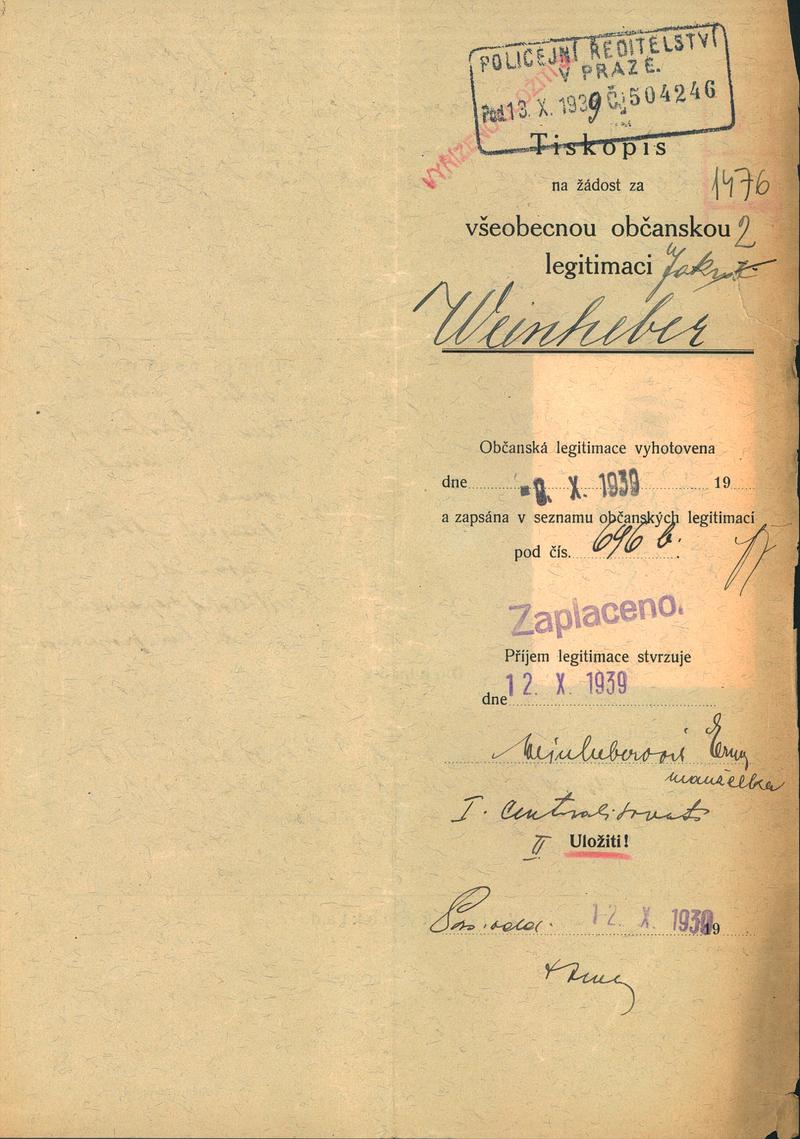 POLICEJNÍ ŘEDITELSTVÍ
V PRAZE.
Pod. 13. X. 1939 Čj 504246
VYŘÍZENO
Tiskopis
na žádost za
1476
všeobecnou občanskou 2
legitimaci
Weinheber
Občanská legitimace vyhotovena
dne X. 1939 19
a zapsána v seznamu občanských legitimací
pod čís. 696 b.
Zaplaceno.
Příjem legitimace stvrzuje
dne 12. X. 1939
Weinheberová
manželka
I. Centralisovati
II Uložiti!
12. X. 1939 19